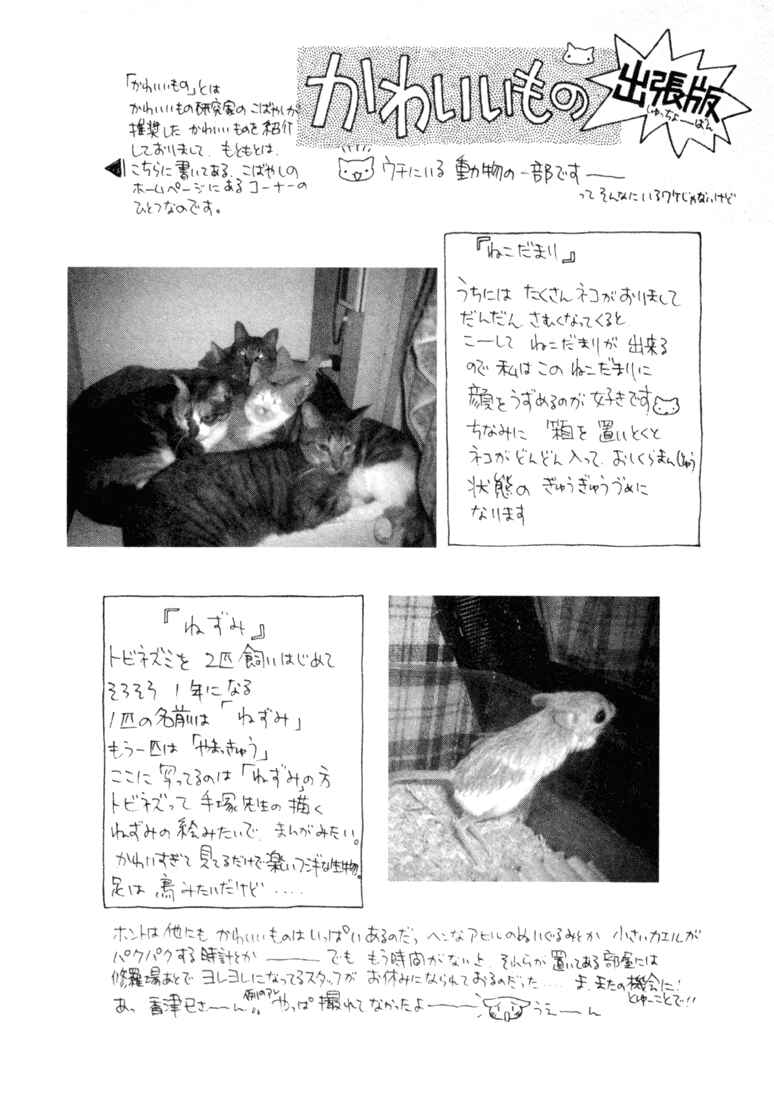 かわいいもの
出張版
しゅっちょーばん
「かわいいもの」とは
かわいいもの研究家の こばやしが
推奨した かわいいものを紹介
しておりまして、もともとは、
こちらに書いてある、こばやしの
ホームページにあるコーナーの
ひとつなのです。
ウチにいる 動物の一部です——
って そんなに いるワケじゃないけど
『ねこだまり』
うちには たくさん ネコがおりまして
だんだん さむくなってくると
こーして ねこだまりが 出来る
ので 私は この ねこだまりに
顔をうずめるのが 好きです
ちなみに 箱を 置いとくと
ネコが どんどん 入って おしくらまんじゅう
状態の ぎゅうぎゅうづめに
なります
『ねずみ』
トビネズミを 2匹 飼いはじめて
そろそろ 1年になる
1匹の名前は 「ねずみ」
もう一匹は 「やまっきゅう」
ここに 写ってるのは 「ねずみ」の方
トビネズって 手塚先生の描く
ねずみの絵みたいで、まんがみたい。
かわいすぎて 見てるだけで楽しいフシギな生物。
足は 鳥みたいだけど ‥‥
ホントは 他にも かわいいものは いっぱい あるのだっ ヘンなアヒルのぬいぐるみとか 小さいカエルが
パクパクする 時計とか ——— でも もう時間がないと、それらが 置いてある 部屋には
修羅場あとで ヨレヨレになってるスタッフが お休みになられておるのだった‥‥ ま、またの機会に!
とゆーことで!!
あっ 香津巳さ——ん 例のアレ やっぱ 撮れてなかったよ——— うえ——ん